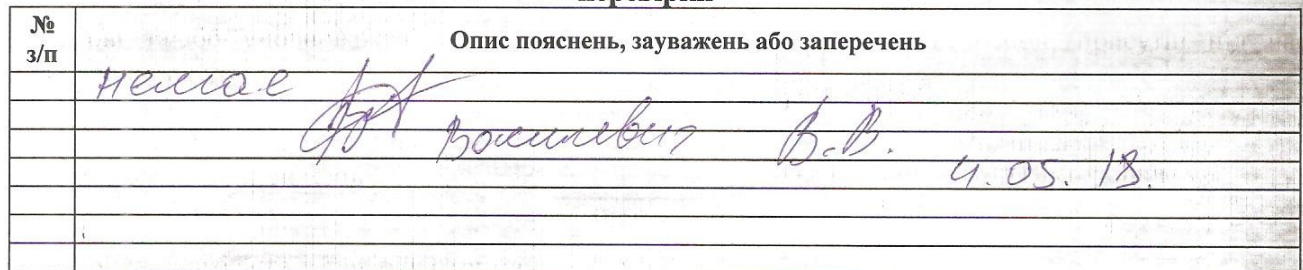 № з/п
Опис пояснень, зауважень або заперечень
немає
Василевич В.В.
4.05.18.